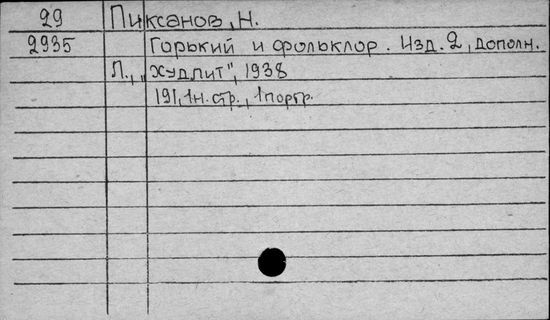 29 Пиксанов, Н.
2935 Горький и фольклор. Изд. 2, дополн.
Л., „Худлит", 1938
191, 1 н. стр., 1 портр.